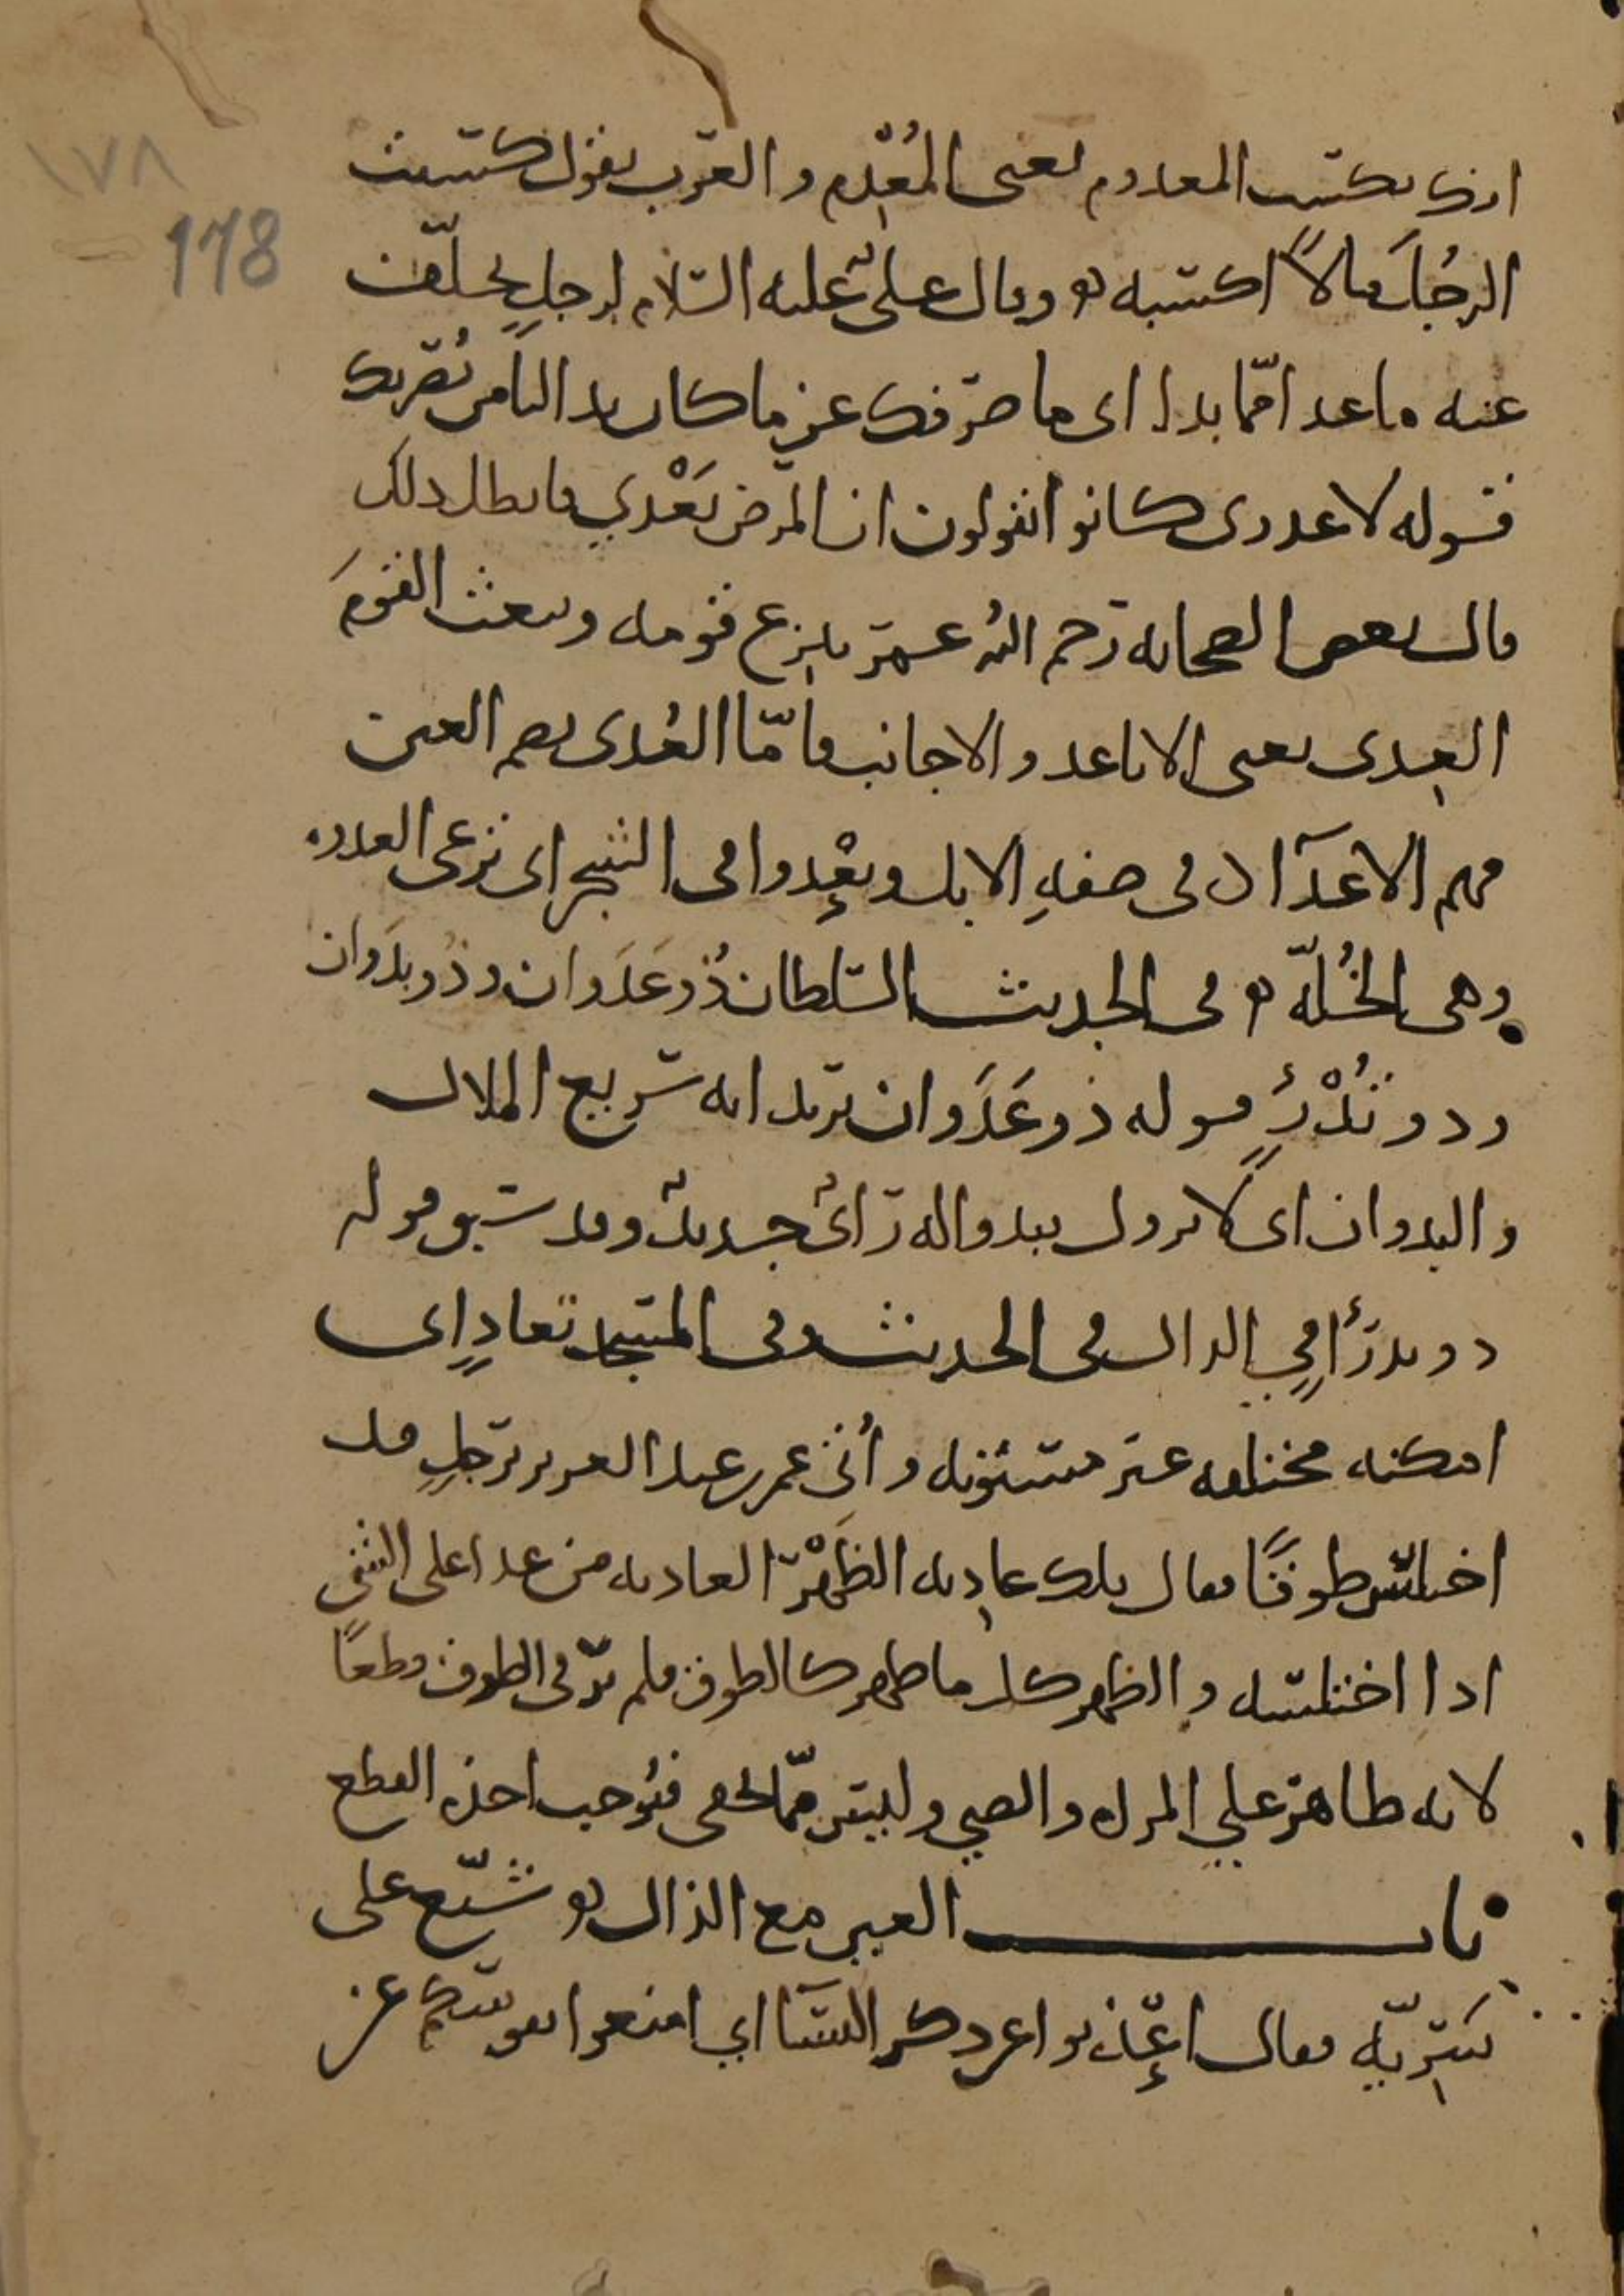 ١٧٨
178
انك تكتسب المعدوم يعني المُعْدِم والعرب تقول كسبت
الرجُلَ مالاً اكسبته ٥ وقال عليٌّ عليه السلام لرجلٍ تخلّف
عنه ما عدا ممّا بدا اي ما صرفك عن ما كان بدا لنا من نُصرتك
قوله لا عدوى كانوا يقولون ان المرض يَعْدي فابطل ذلك
قال بعض الصحابة رحم الله عمر ينزع قومه ويبعث القومَ
العِدى يعني الاباعد والاجانب فامّا العُدى بضم العين
فهم الاعدآ ٥ في صفةِ الابل ويعْدوا في الشجر اي ترعى العدوه
وهي الخُلّة ٥ في الحديث السلطان ذُو عَدَوان وذو بدَوان
وذو تُدْرَءٍ قوله ذو عَدَوان يريد انه سريع الملال
والبدوان اي لا يزول يبدو اله رَأيٌ جديدٌ وقد سبق قوله
ذو تدرَأٍ في الدال في الحديث وفي المسجد تعادٍ اي
امكنة مختلفة غير مستوية وأتى عمر بن عبد العزيز برجلٍ قد
اختلس طوقًا فقال تلك عادِية الظَهْر العادية من عدا على الشي
اذا اختلسه والظهر كل ما ظهر كالطوق فلم ير في الطوق قطعًا
لانه ظاهر علي المراه والصبي وليس ممّا يخفى فيُوجب اخذه القطع
باب العين مع الذال ٥ شيّع على
سَرِيّة فقال اعْذبوا عن ذكر النسآ اي امنعوا نفوسكم عن